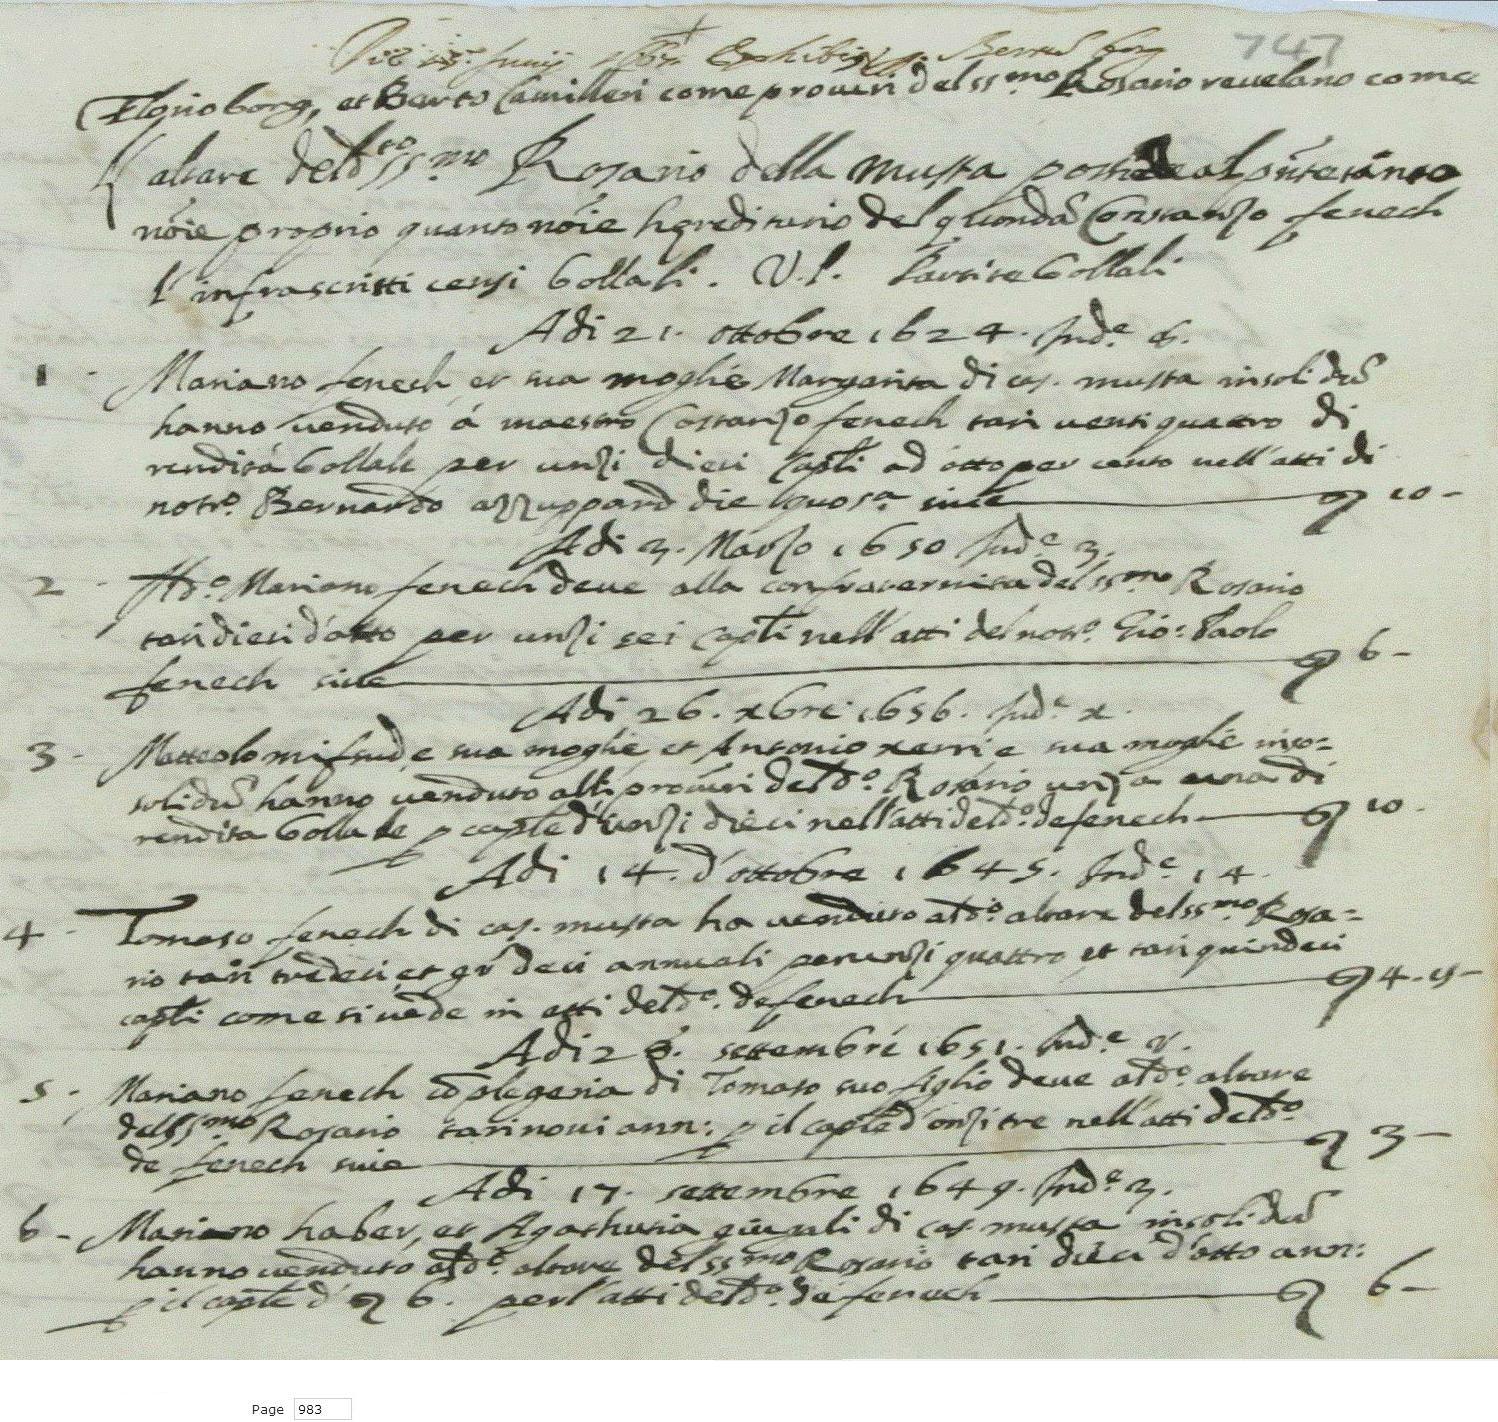 747
Die Junij Exhibi Borg
Flǫrio borg, et Berto Camilleri come procuri del ss.mo Rosario reuelano come
l'altare del d.to ss.mo Rosario della musta possiede al p̃nte tanto
nõie proprio quanto nõie hęreditario del quondã Costanzo fenech
l'infrascritti censi bollali. V.l. bollali
Adi 21. ottobre 1624. Ind.e 8.
1 - Mariano fenech et sua moglie Margarita di cas. musta insolidũ
hanno venduto á maestro Costanzo fenech tari uentiquattro di
rendita bollale per unzi dieci cap̃li ad otto per cento nell'atti di
notr.o Bernardo azzuppard die quo s.a siue — 10 -
Adi 3. Marzo 1650 Ind.e 3.
2 - Mariano fenech deue alla confraternita del ss.mo Rosario
tari dieci d'otto per unzi sei cap̃li nell'atti del notr.o Gio: Paolo
fenech siue — 6 -
Adi 26. xbre 1656. Ind.e x.
3 - Matteolo mifsud, e sua moglie, et Antonio xerri e sua moglie inso=
solidũ hanno venduto alli procuri del d.o Rosario unza una di
rendita bollale p cap̃le d'unzi dieci nell'atti del d.o de fenech — 10 -
Adi 14. d'ottobre 1645. Ind.e 14.
4 - Tomaso fenech di cas. musta ha venduto al d.o altare del ss.mo Rosa=
rio tari tredeci et gr̃ deci annuali per unzi quattro et tari quindeci
cap̃li come si uede in atti del d.o de fenech — 4.15 -
Adi 28. settembre 1651. Ind.e v.
5 - Mariano fenech cõ plegeria di Tomaso suo figlio deue al d.o altare
del ss.mo Rosario tari noui ann: p il cap̃le d'onzi tre nell'atti del d.o
de fenech siue — 3 -
Adi 17. settembre 1649. Ind.e 3.
6 - Mariano haber, et Agathusia giugali di cas. musta insolidũ
hanno venduto al d.o altare del ss.mo Rosario tari dieci d'otto ann:
p il cap̃le d' 6. per l'atti del d.o de fenech — 6 -
Page 983